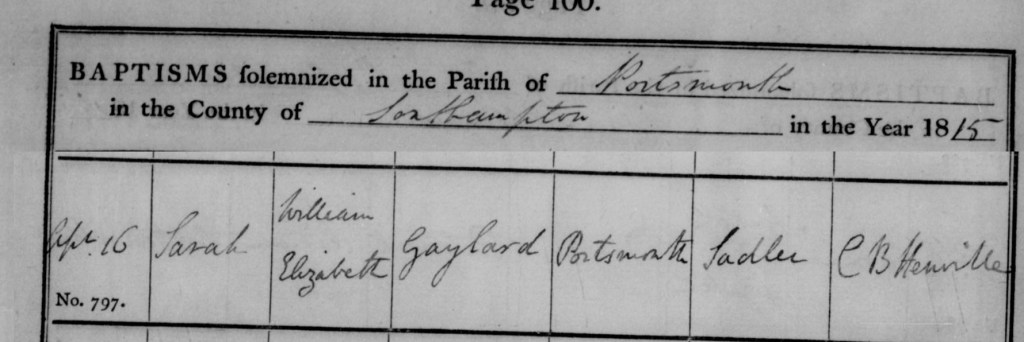 Page 100.
BAPTISMS ſolemnized in the Pariſh of Portsmouth
in the County of Southampton in the Year 1815
Sept. 16 Sarah William Elizabeth Gaylard Portsmouth Sadler C B Henville
No. 797.